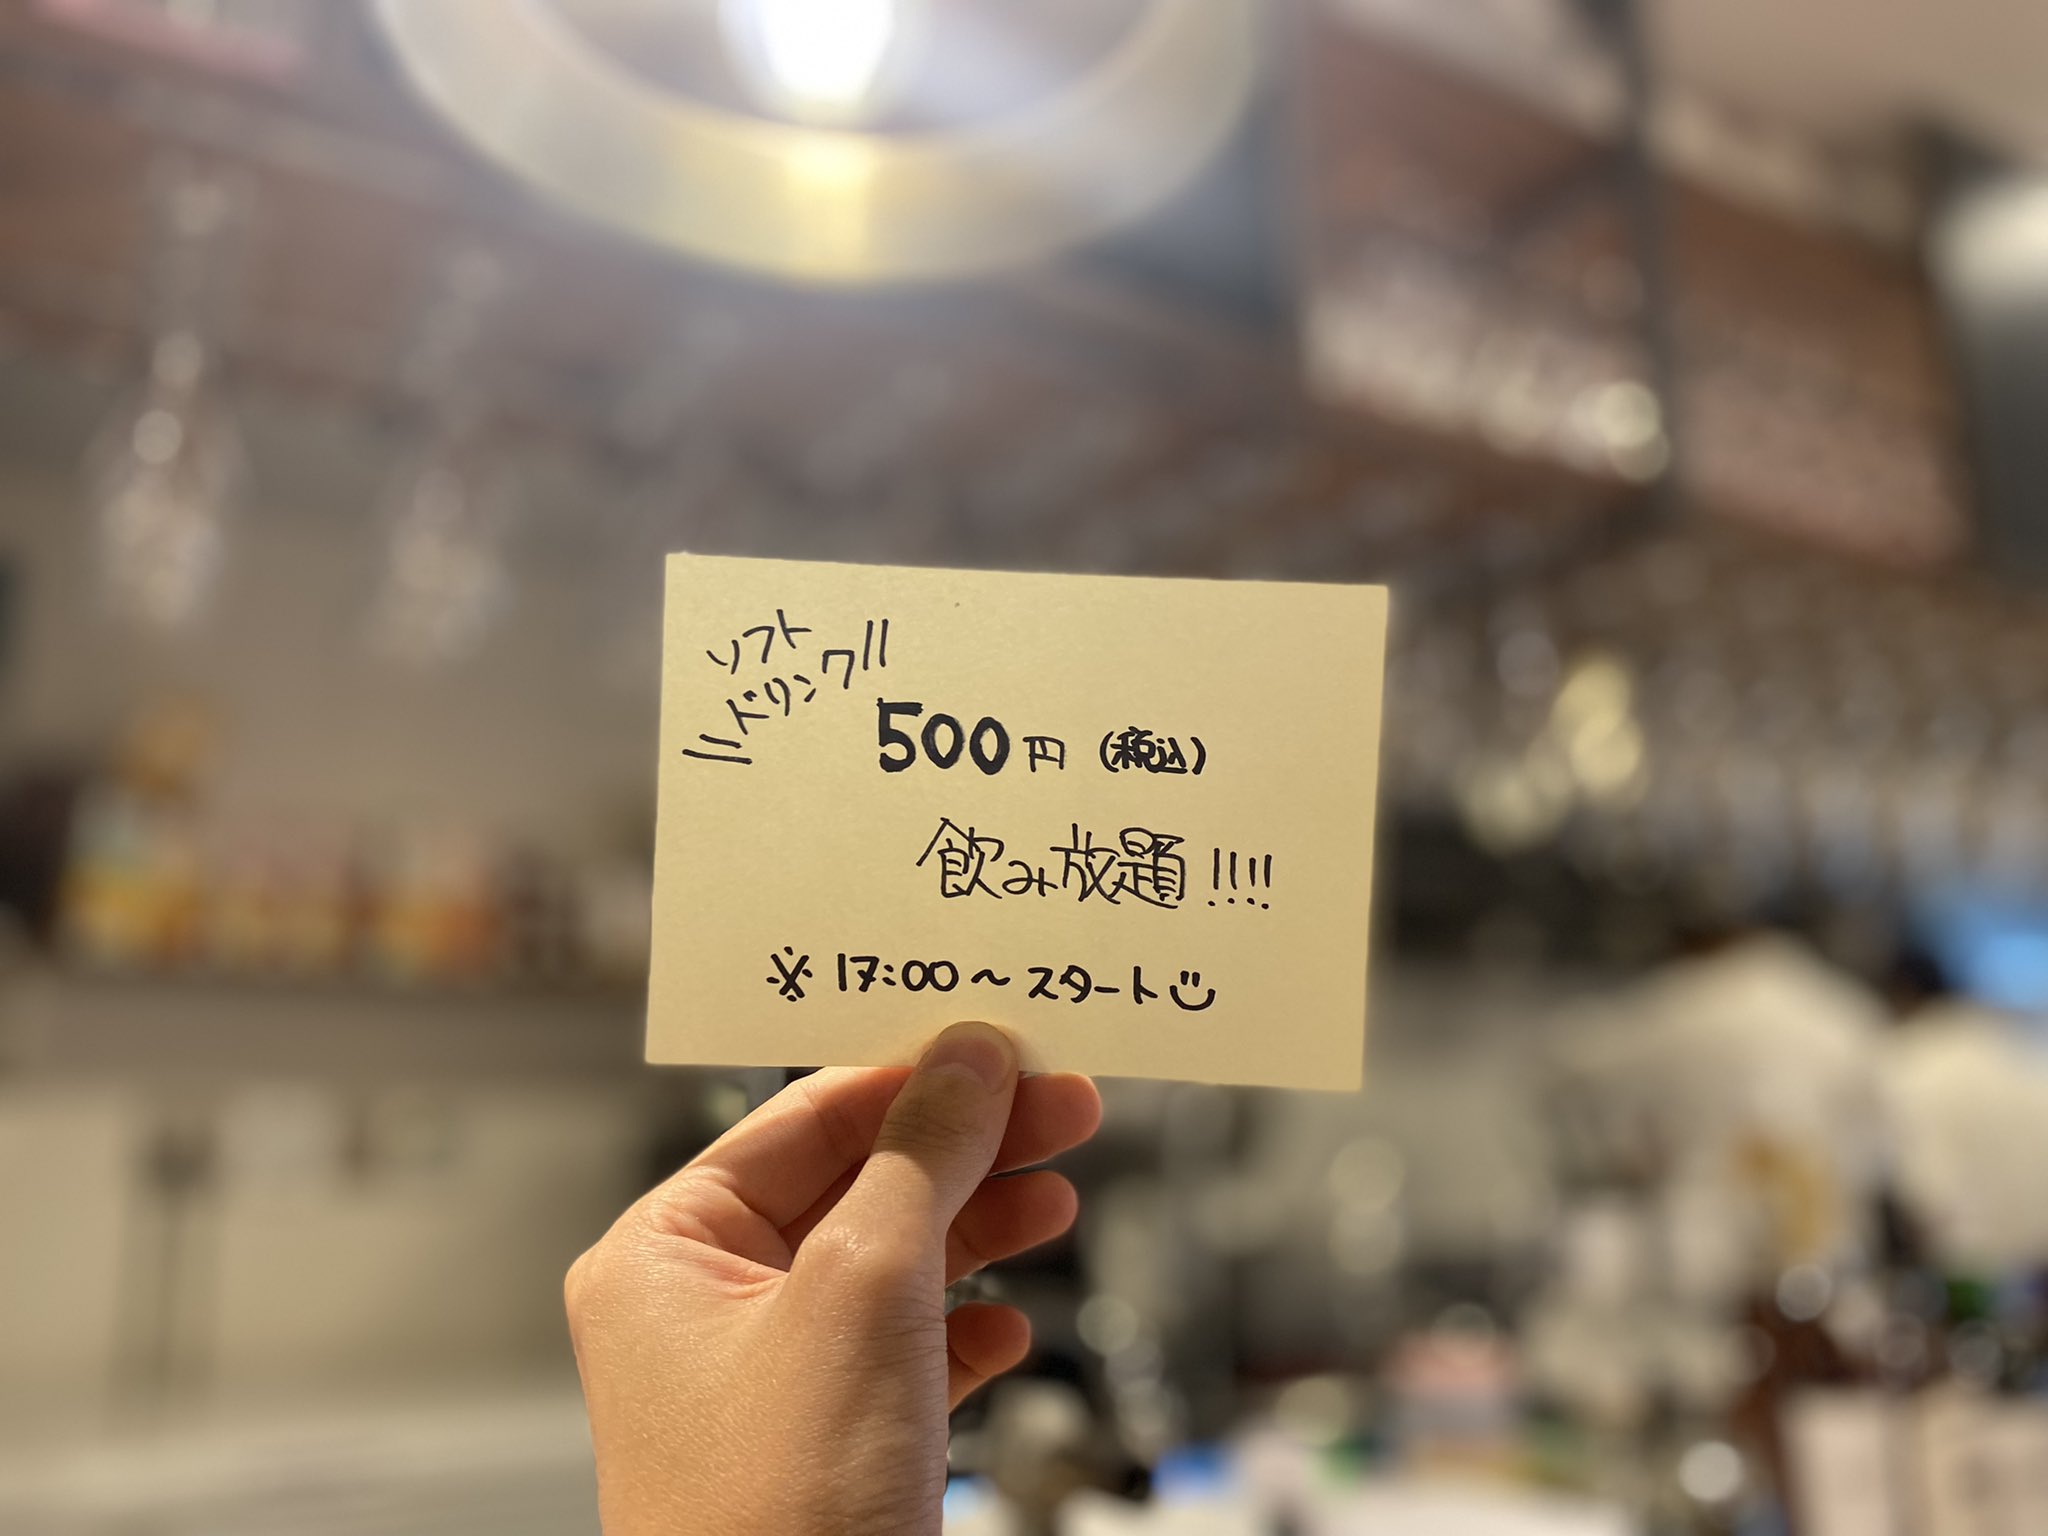 ソフト
ドリンク
500円(税込)
飲み放題!!!!
※17:00~スタート